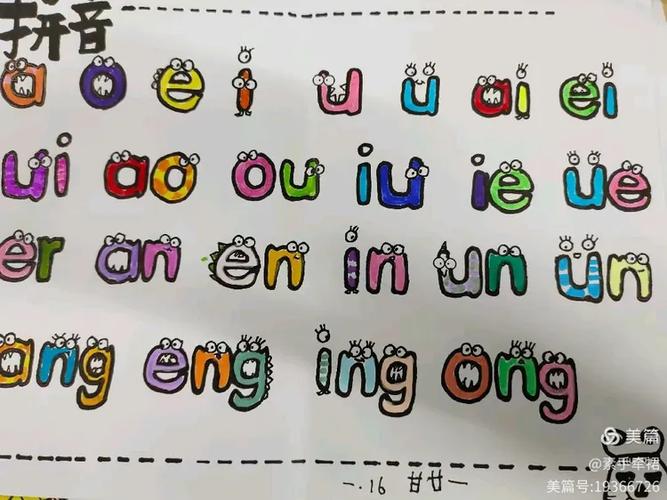 拼音
a o e i u ü ai ei
ui ao ou iu ie üe
er an en in un ün
ang eng ing ong
16
美篇
@素手牵裙
美篇号:19366726